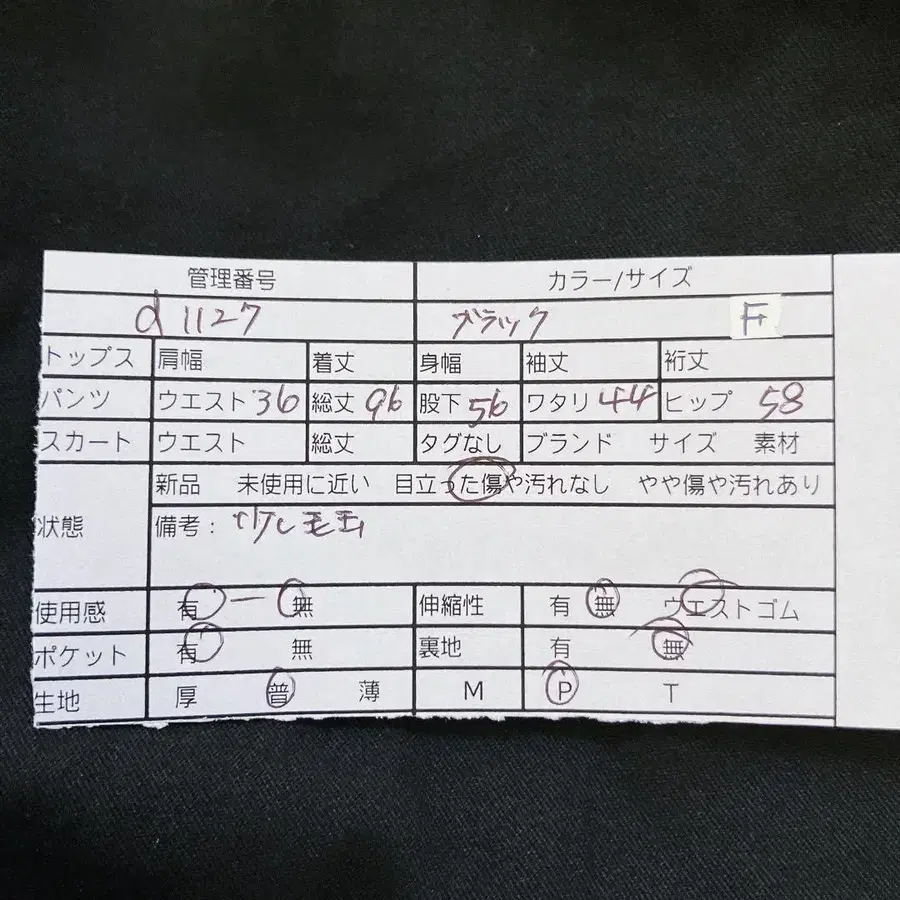 管理番号 カラー/サイズ
d1127 ブラック F
トップス 肩幅 着丈 身幅 袖丈 裄丈
パンツ ウエスト 36 総丈 96 股下 56 ワタリ 44 ヒップ 58
スカート ウエスト 総丈 タグなし ブランド サイズ 素材
新品 未使用に近い 目立った傷や汚れなし やや傷や汚れあり
状態 備考:
使用感 有 無 伸縮性 有 無 ウエストゴム
ポケット 有 無 裏地 有 無
生地 厚 普 薄 M P T